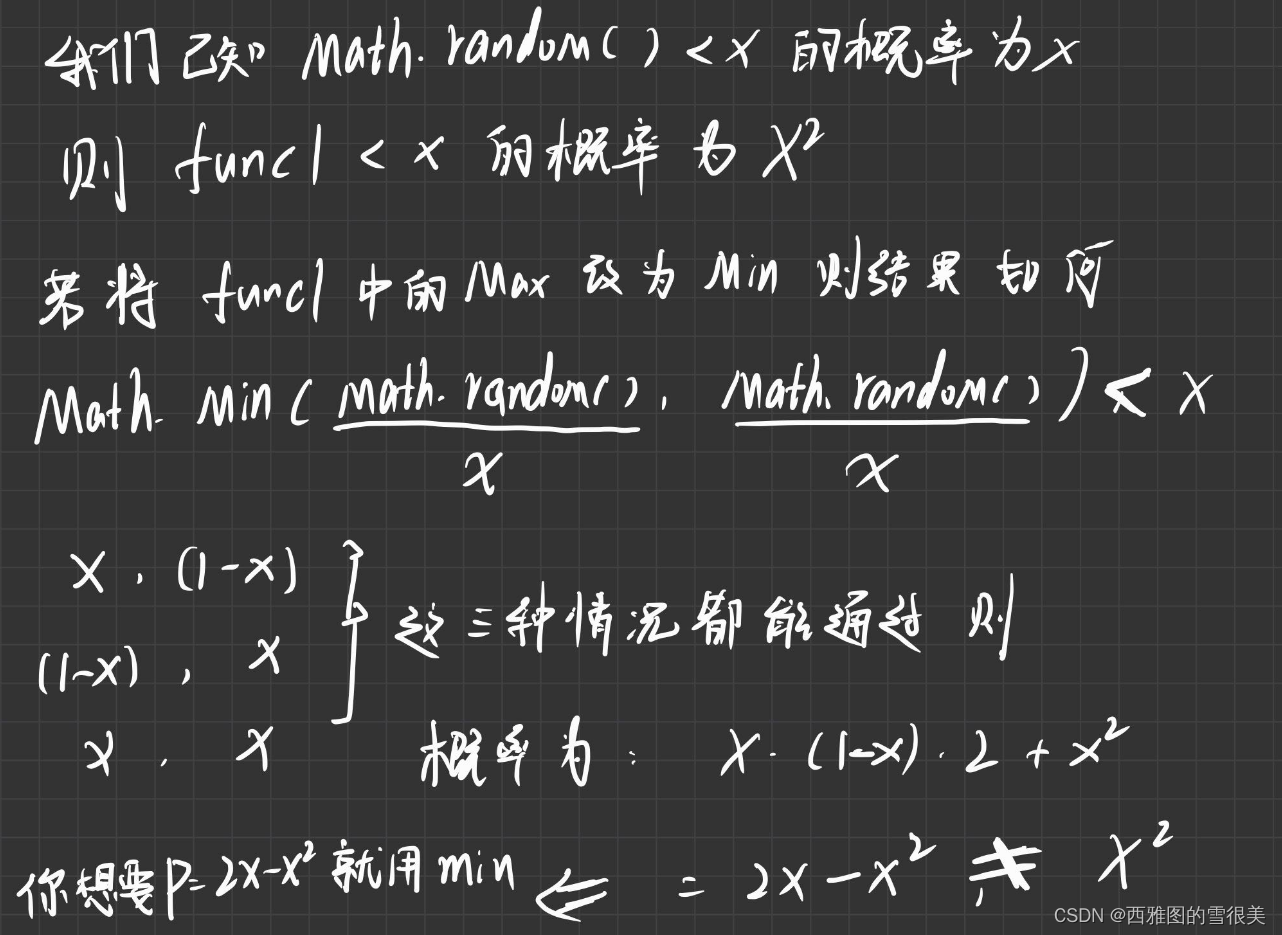 我们已知 Math.random() < x 的概率为 x
则 func1 < x 的概率为 x²
若将 func1 中的 Max 改为 Min 则结果如何
Math.Min(Math.random(), Math.random()) < x
x x
x , (1-x)
(1-x) , x
这三种情况都能通过 则
x , x
概率为: x·(1-x)·2 + x²
你想要 P=2x-x² 就用 min ⇐ = 2x-x² ≠ x²
CSDN @西雅图的雪很美